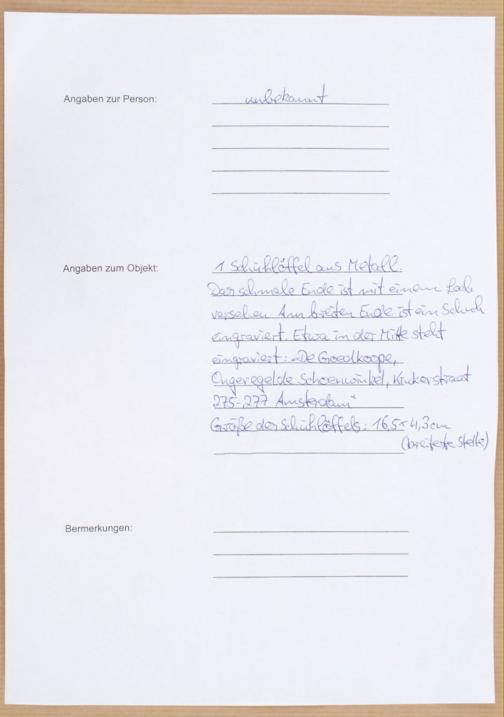 Angaben zur Person:
unbekannt
Angaben zum Objekt:
1 Schuhlöffel aus Metall.
Das schmale Ende ist mit einem Loch
versehen. Am breiten Ende ist ein Schuh
eingraviert. Etwa in der Mitte steht
eingraviert: „De Goedkoope,
Ongeregelde Schoenwinkel, Kinkerstraat
275-277 Amsterdam“
Größe des Schuhlöffels: 16,5 x 4,3 cm
(breiteste Stelle)
Bermerkungen: